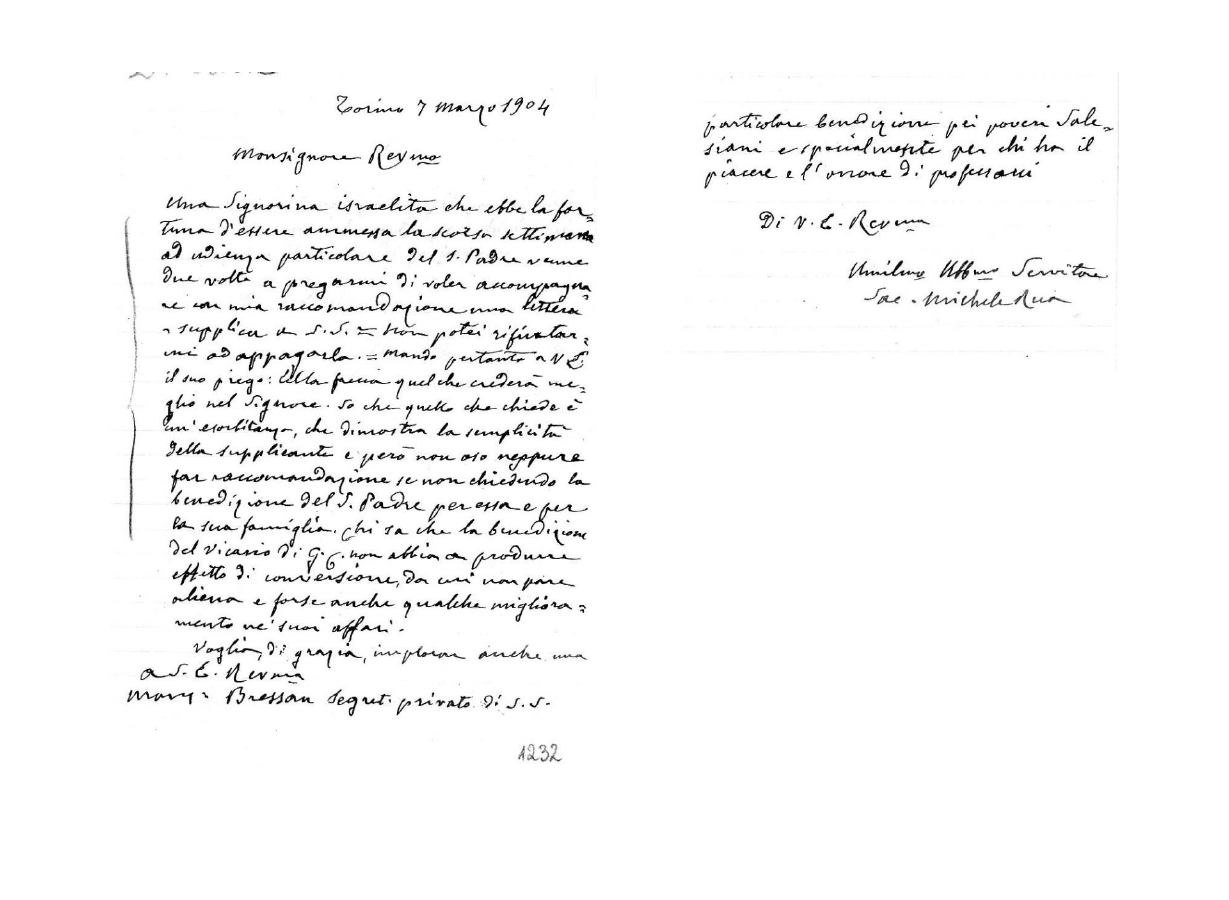 Torino 7 Marzo 1904
Monsignore Revmo
Una Signorina israelita che ebbe la for=
tuna d'essere ammessa la scorsa settimana
ad udienza particolare del S. Padre venne
due volte a pregarmi di voler accompagna=
re con mia raccomandazione una lettera
- supplica a S. S. = Non potei rifiutar=
mi ad appagarla. = Mando pertanto a V E
il suo prego: Ella faccia quel che crederà me=
glio nel Signore. So che quello che chiede è
un' esorbitanza, che dimostra la semplicità
della supplicante e però non oso neppure
far raccomandazione se non chiedendo la
benedizione del S. Padre per essa e per
la sua famiglia. Chi sa che la benedizione
del Vicario di G. C. non abbia a produrre
effetto di conversione, da cui non pare
aliena e forse anche qualche migliora=
mento ne' suoi affari.
Voglia, di grazia, implorar anche una
a S. E. Revma
Monsr Bressan Segret. privato di S. S.
1232
particolare benedizione pei poveri Sale=
siani e specialmente per chi ha il
piacere e l'onore di professarsi
Di V. E. Revma
Umilmo Obbmo Servitore
Sac. Michele Rua